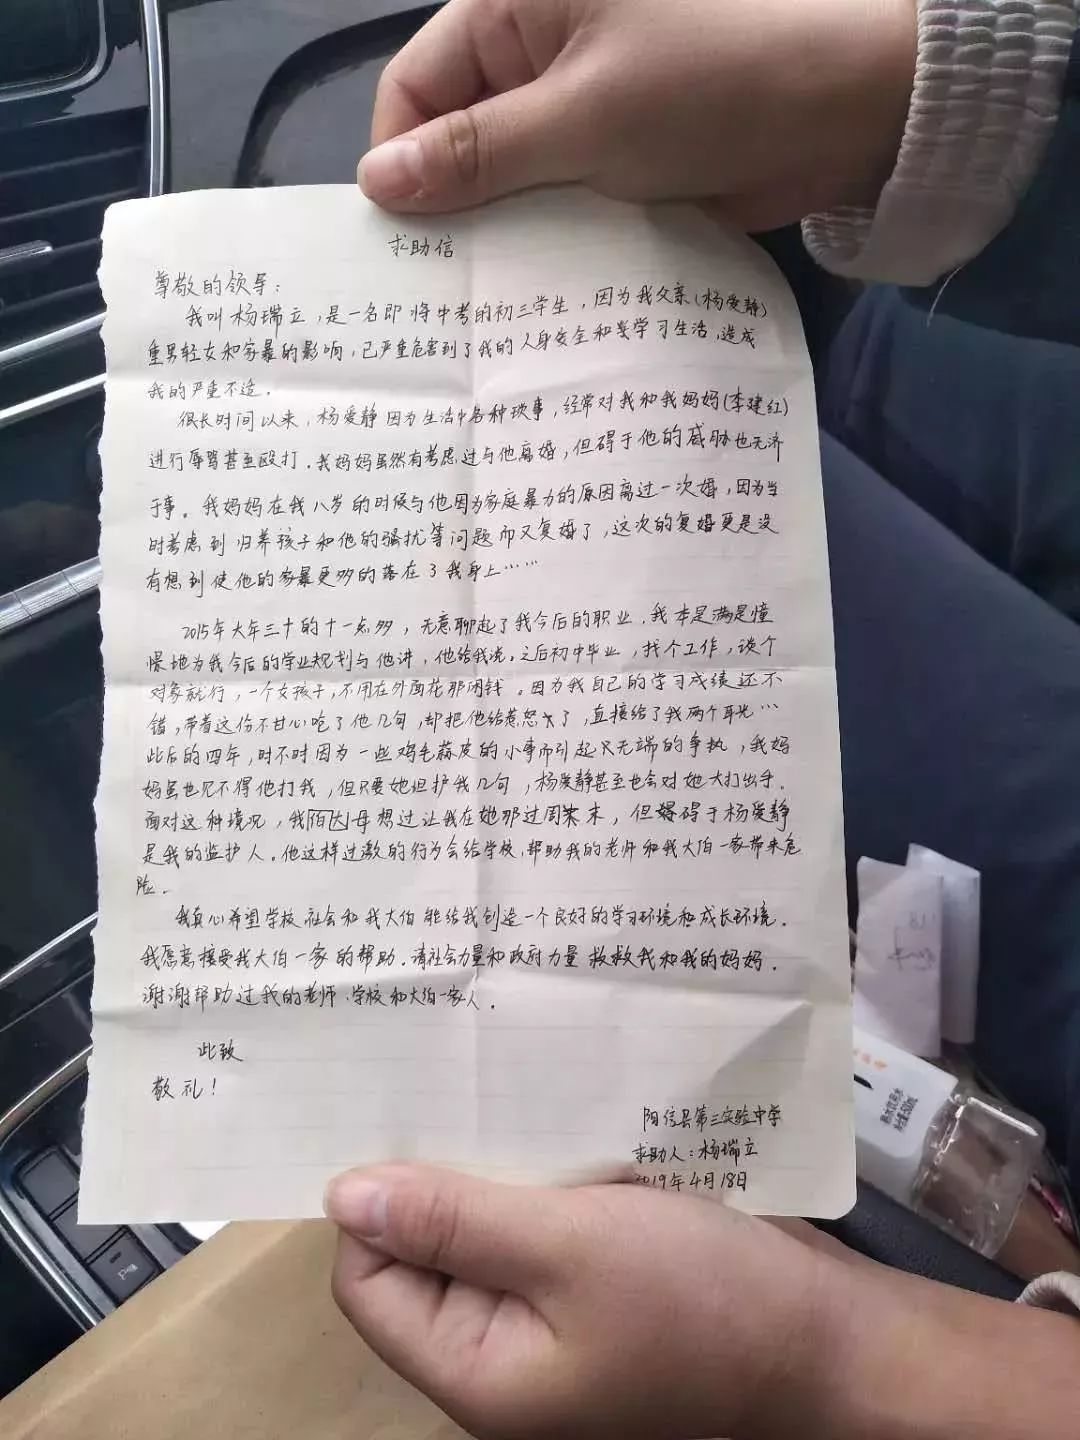 求助信
尊敬的领导：
我叫杨瑞立，是一名即将中考的初三学生，因为我父亲（杨爱静）
重男轻女和家暴的影响，已严重危害到了我的人身安全和学习生活，造成
我的严重不适。
很长时间以来，杨爱静因为生活中各种琐事，经常对我和我妈妈（李建红）
进行辱骂甚至殴打。我妈妈虽然有考虑过与他离婚，但碍于他的威胁也无济
于事。我妈妈在我八岁的时候与他因为家庭暴力的原因离过一次婚，因为当
时考虑到归养孩子和他的骚扰等问题而又复婚了，这次的复婚更是没
有想到使他的家暴更多的落在了我身上……
2015年大年三十的十一点多，无意聊起了我今后的职业，我本是满是憧
憬地为我今后的学业规划与他讲，他给我说，之后初中毕业，找个工作，谈个
对象就行，一个女孩子，不用在外面花那闲钱。因为我自己的学习成绩还不
错，带着这份不甘心吃了他几句，却把他给惹怒了，直接给了我两个耳光…
此后的四年，时不时因为一些鸡毛蒜皮的小事而引起无端的争执，我妈
妈虽也见不得他打我，但只要她袒护我几句，杨爱静甚至也会对她大打出手。
面对这种境况，我伯母想过让我在她那过周末，但碍于杨爱静
是我的监护人。他这样过激的行为会给学校，帮助我的老师和我大伯一家带来危
险。
我真心希望学校社会和我大伯能给我创造一个良好的学习环境和成长环境。
我愿意接受我大伯一家的帮助。请社会力量和政府力量救救我和我的妈妈。
谢谢帮助过我的老师、学校和大伯一家人。
此致
敬礼！
阳信县第三实验中学
求助人：杨瑞立
2019年4月18日